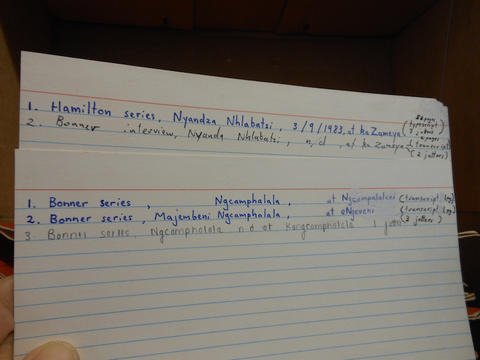 1. Hamilton series, Nyandza Nhlabatsi, 3/9/1983, at kaZameya (typescript 2 jotters
2. Bonner interview, Nyanda Nhlabatsi, n,d, at kaZameya (2 jotters)
1. Bonner series, Ngcamphalala, at Ngcampalaleni (transcript log)
2. Bonner series, Majembeni Ngcamphalala, at eNgeveni (transcript log) (3 jotters)
3. Bonner series, Ngcamphalala n.d at Kangcamphalala 1 jotter